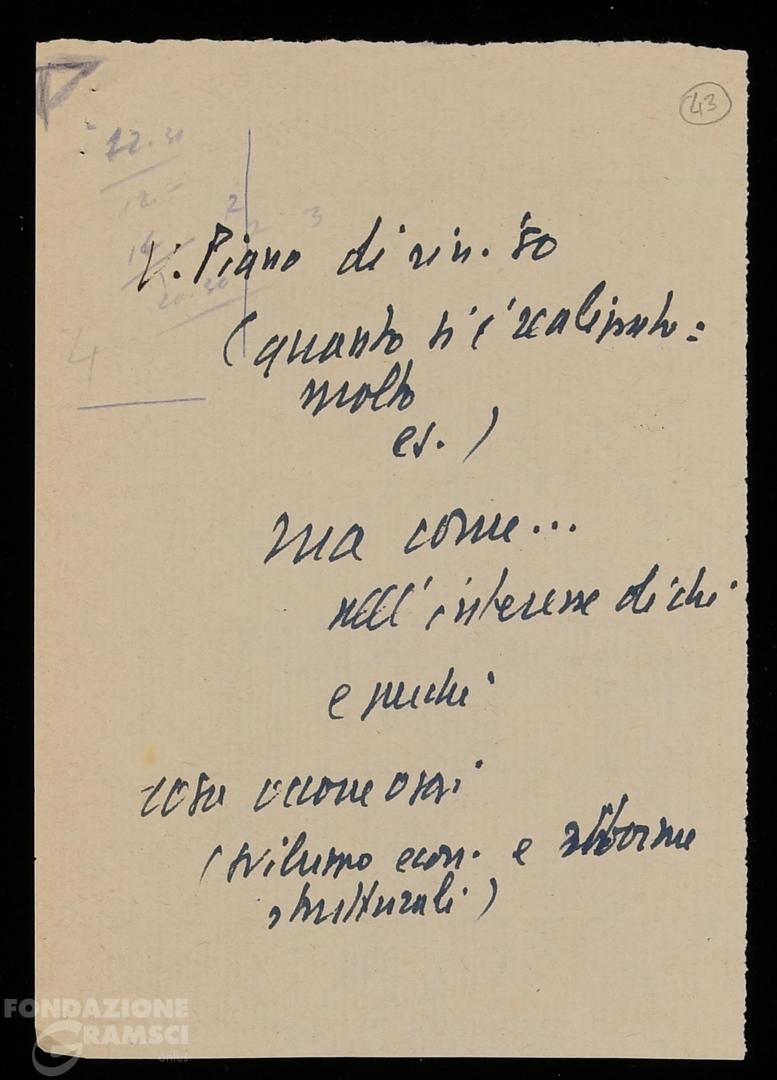 43
22.30
12
2
2. 3
14
20.30
4
V. Piano di rin. '50
(quanto si è realizzato:
molto
es.)
ma come...
nell'interesse di chi
e perché
cosa occorre oggi
(sviluppo econ. e riforme
strutturali)
FONDAZIONE
GRAMSCI
onlus